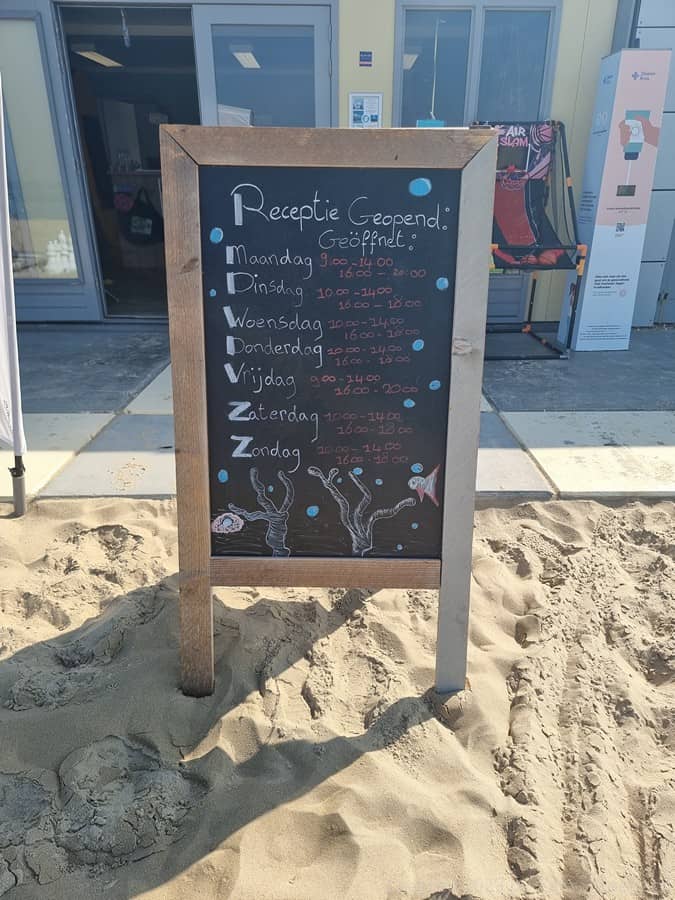 Receptie Geopend:
Geöffnet:
Maandag 9:00-14:00
16:00 - 20:00
Dinsdag 10:00-14:00
16:00 - 18:00
Woensdag 10:00-14:00
16:00 - 18:00
Donderdag 10:00-14:00
16:00 - 18:00
Vrijdag 9:00-14:00
16:00 - 20:00
Zaterdag 10:00-14:00
16:00 - 18:00
Zondag 10:00-14:00
16:00 - 18:00
AIR
SLAM